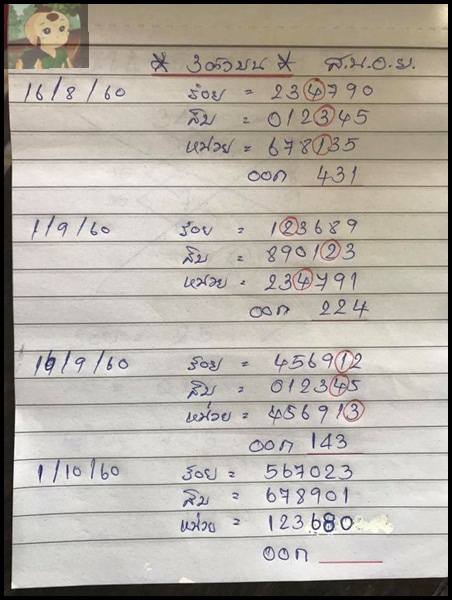 * 3ตัวบน * ส.น.อ.ย.
16/8/60 ร้อย = 234790
สิบ = 012345
หน่วย = 678135
ออก 431
1/9/60 ร้อย = 123689
สิบ = 890123
หน่วย = 234791
ออก 224
16/9/60 ร้อย = 456912
สิบ = 012345
หน่วย = 456913
ออก 143
1/10/60 ร้อย = 567023
สิบ = 678901
หน่วย = 123680
ออก